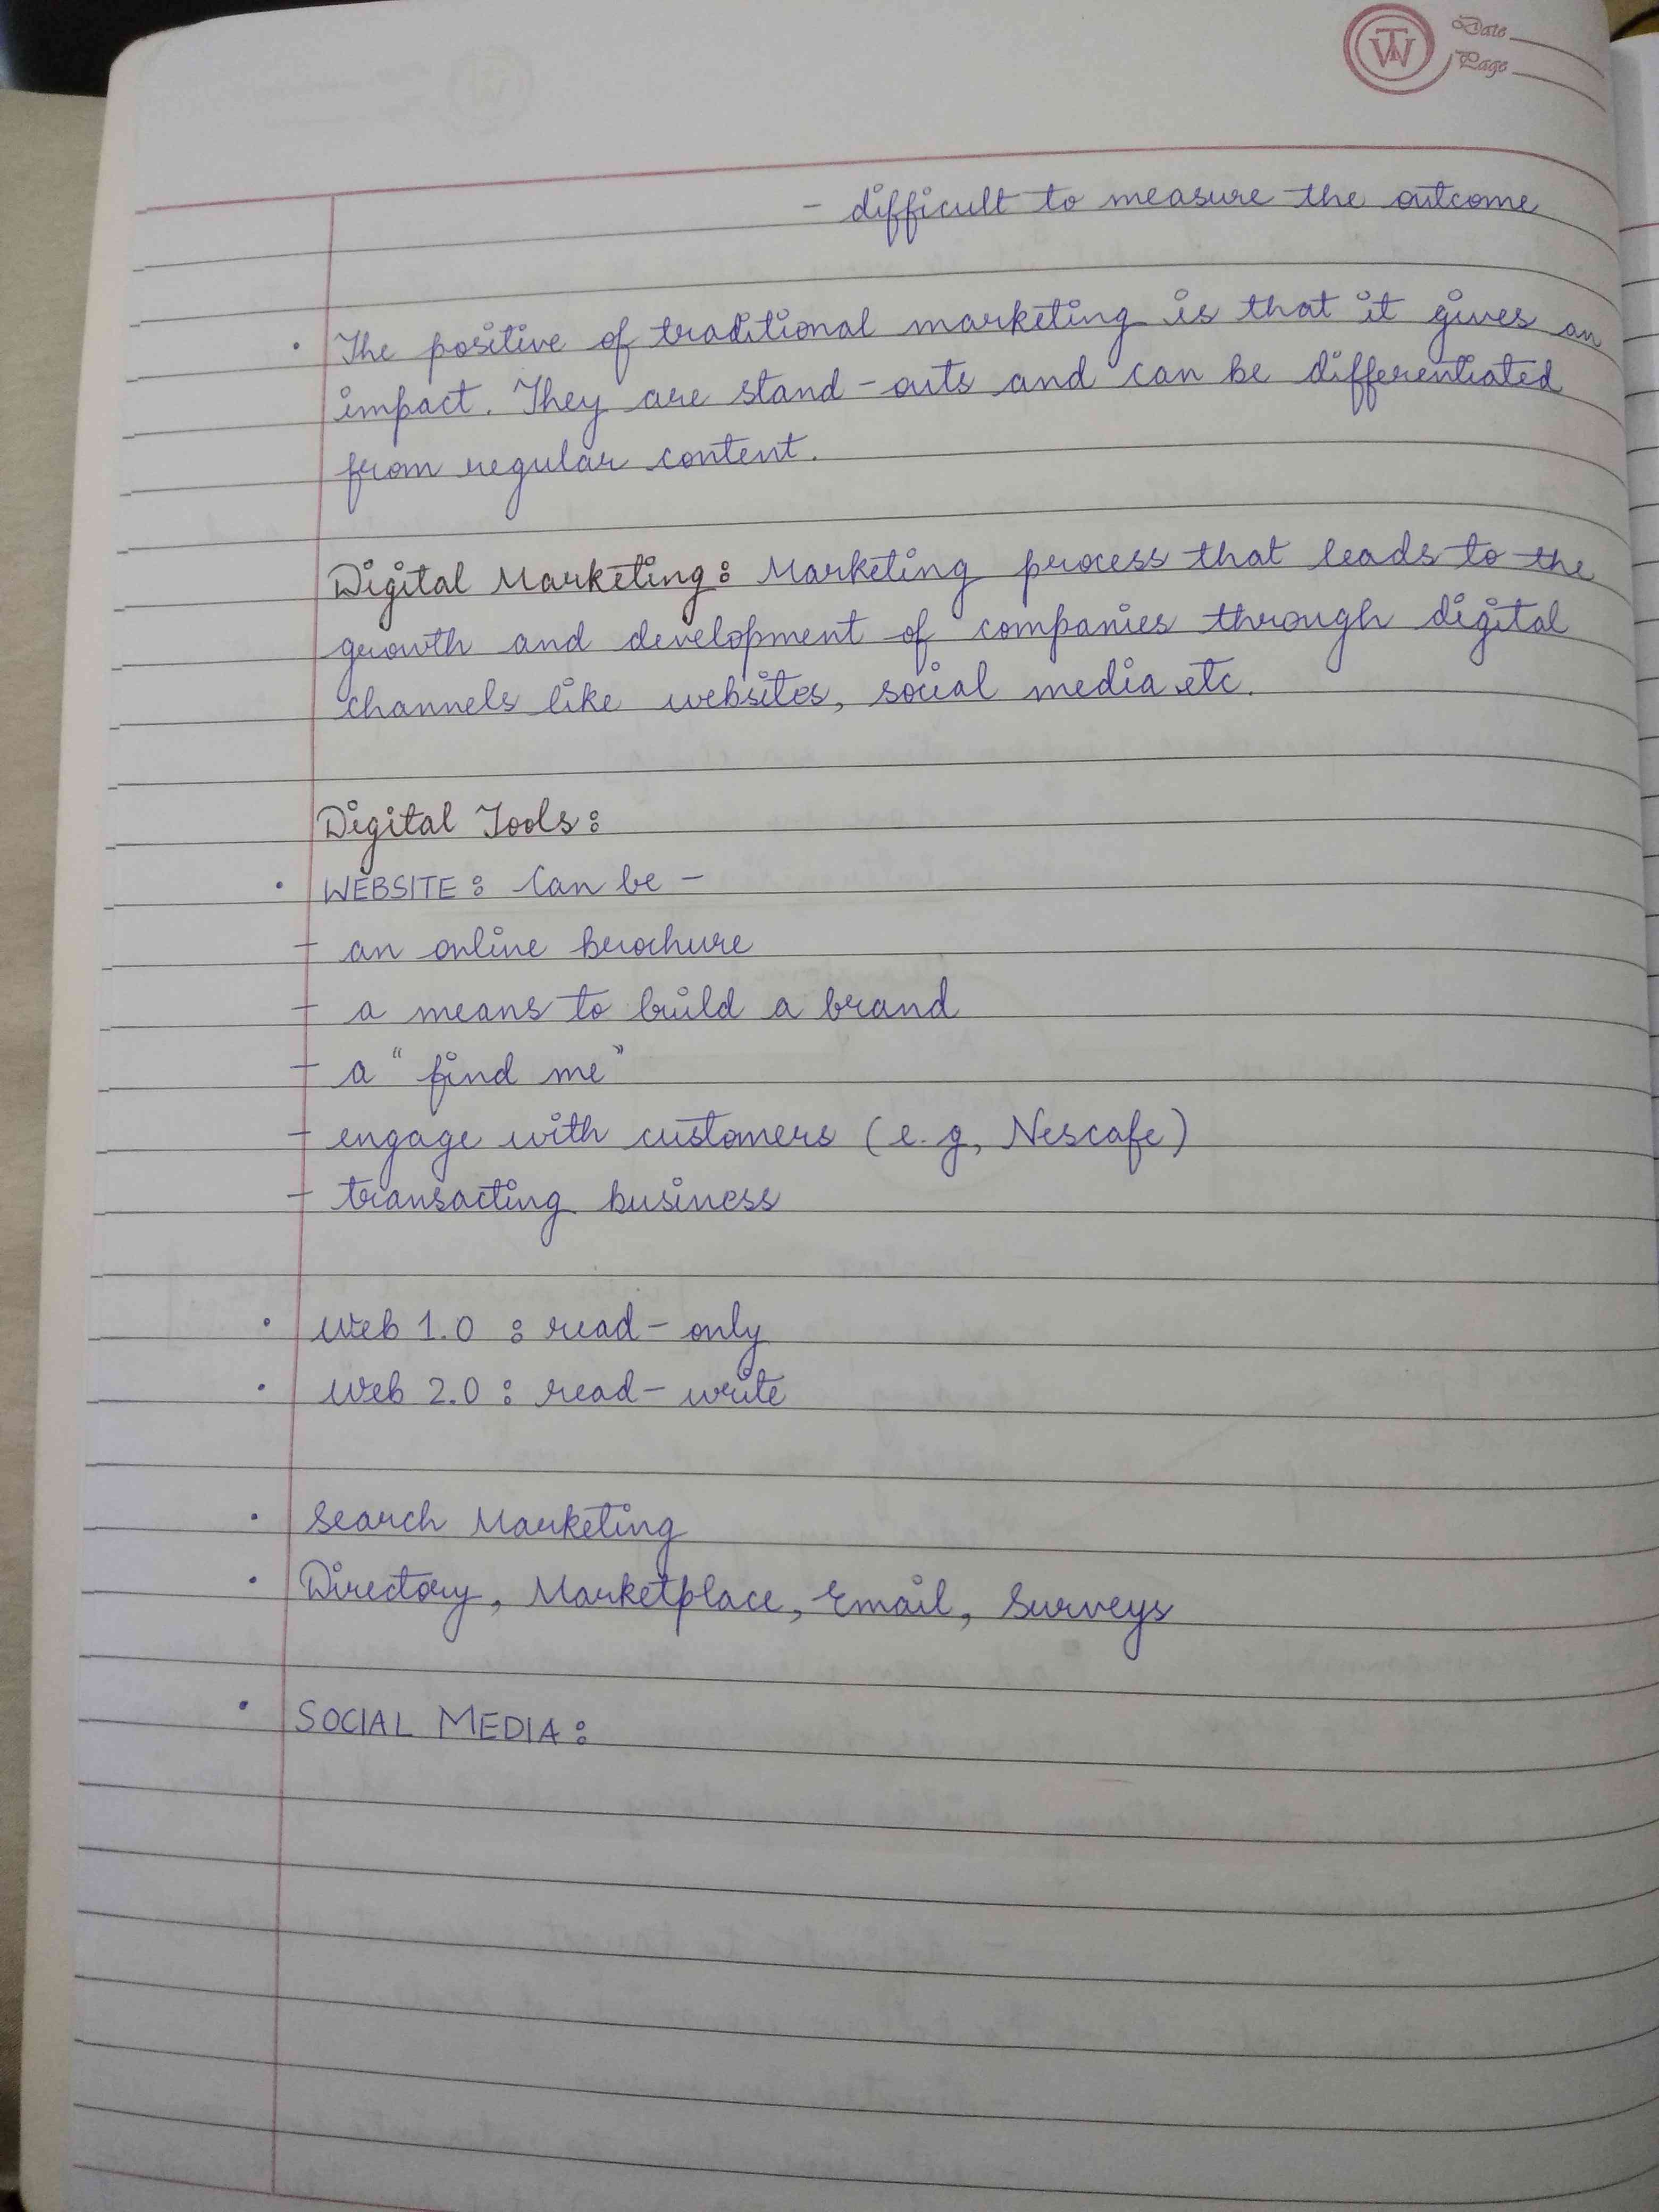 TW
Date
Page
- difficult to measure the outcome
• The positive of traditional marketing is that it gives an
impact. They are stand-outs and can be differentiated
from regular content.
Digital Marketing: Marketing process that leads to the
growth and development of companies through digital
channels like websites, social media etc.
Digital Tools:
• WEBSITE: Can be -
- an online brochure
- a means to build a brand
- a "find me"
- engage with customers (e.g, Nescafe)
- transacting business
• Web 1.0 : read-only
• Web 2.0 : read-write
• Search Marketing
• Directory, Marketplace, Email, Surveys
• SOCIAL MEDIA: